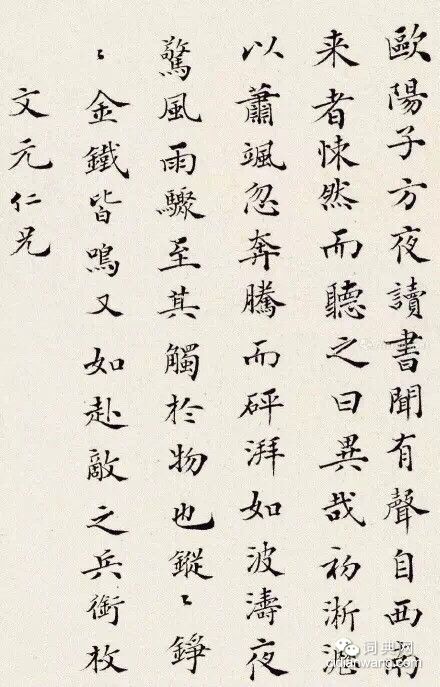 歐陽子方夜讀書聞有聲自西南
来者悚然而聽之曰異哉初淅瀝
以蕭颯忽奔騰而砰湃如波濤夜
驚風雨驟至其觸於物也鏦〻錚
〻金鐵皆鳴又如赴敵之兵銜枚
文元仁兄
词典网
cidianwang.com